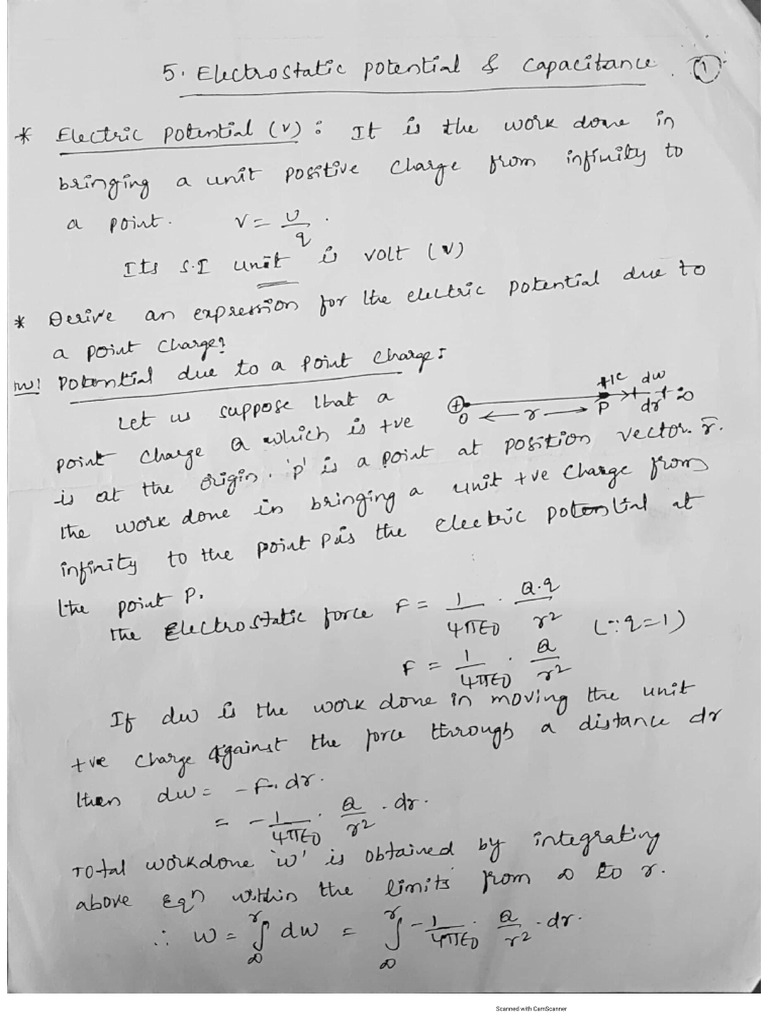 5. Electrostatic potential & capacitance. 1
* Electric potential (V) : It is the work done in
bringing a unit positive charge from infinity to
a point. V = U/q .
Its S.I unit is volt (V)
* Derive an expression for the electric potential due to
a point charge?
Potential due to a point charge :
Let us suppose that a
point charge Q which is +ve
+1C dw
+ O ← r → P dr ∞
is at the origin. 'p' is a point at position vector. r̄.
the work done in bringing a unit +ve charge from
infinity to the point P is the electric potential at
the point P.
the Electrostatic force F = 1/4πε0 . Q.q/r²
F = 1/4πε0 . Q/r² (∵ q = 1)
If dw is the work done in moving the unit
+ve charge against the force through a distance dr
then dw = -F.dr.
= -1/4πε0 . Q/r² . dr.
Total workdone 'w' is obtained by integrating
above Eqn within the limits from ∞ to r.
∴ w = ∫∞^r dw = ∫∞^r -1/4πε0 . Q/r² . dr.
Scanned with CamScanner